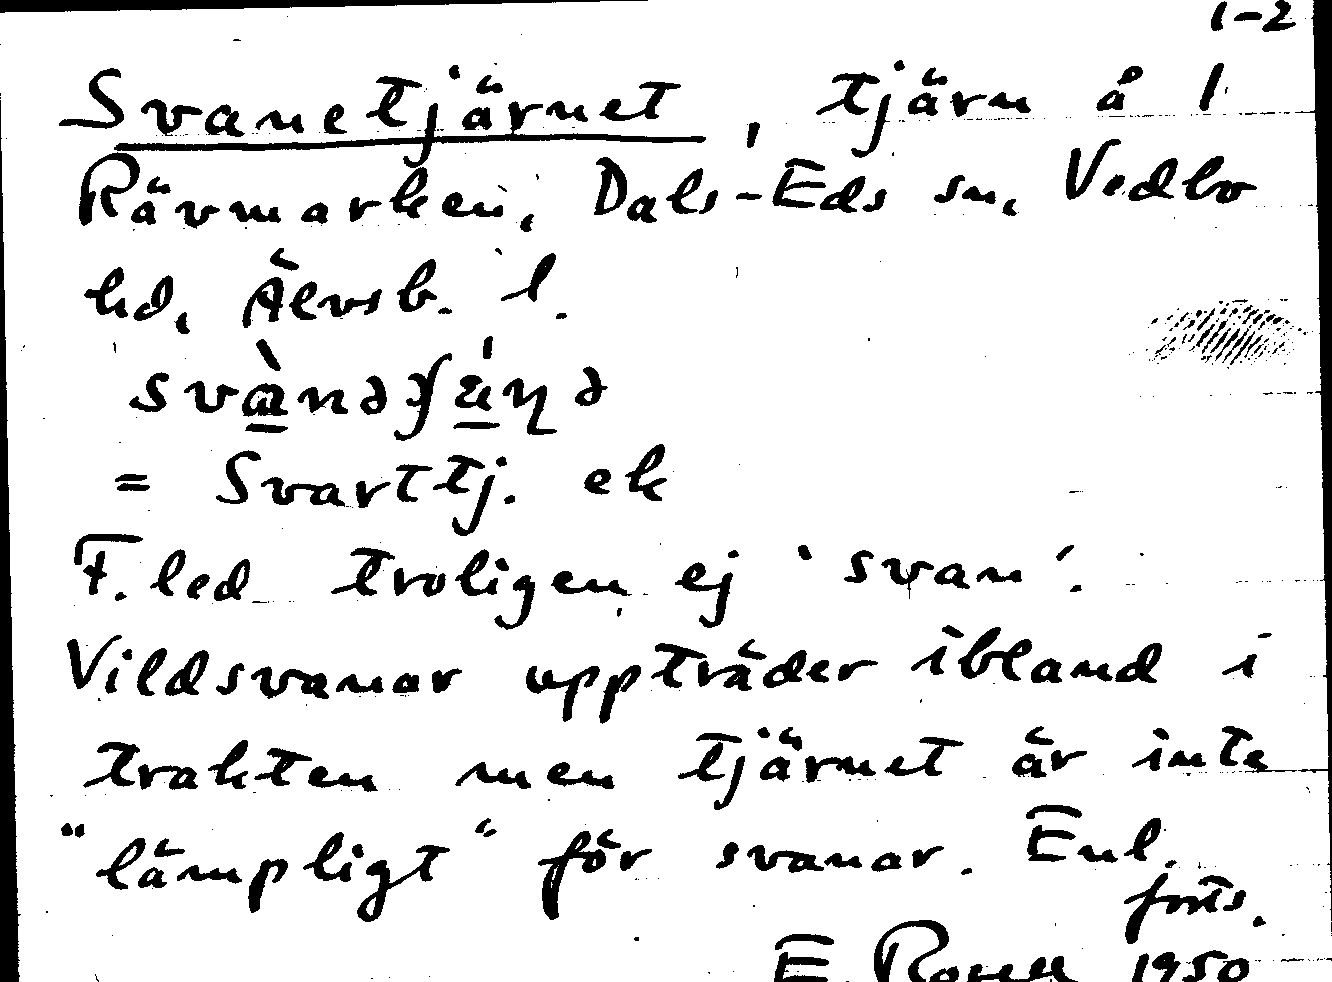 1-2
Svanetjärnet, tjärn å 1
Rävmarken, Dals-Eds sn, Vedbo
hd, Älvsb. l.
= Svarttj. ek
F. led troligen ej 'svan'.
Vildsvanar uppträder ibland i
trakten men tjärnet är inte
"lämpligt" för svanar. Enl.
forts.
E. 1950